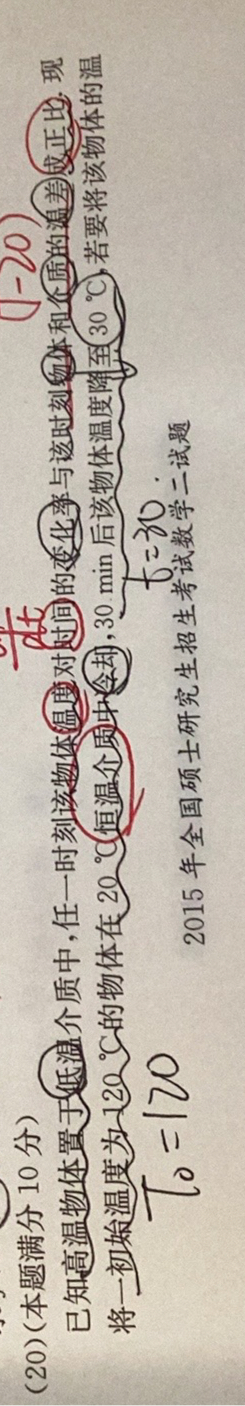 (20)(本题满分 10 分)
已知高温物体置于低温介质中,任一时刻该物体温度对时间的变化率与该时刻物体和介质的温差成正比.现
将一初始温度为 120 ℃的物体在 20 ℃恒温介质中冷却,30 min 后该物体温度降至 30 ℃,若要将该物体的温
T₀=120
t=30.
(T-20)
dt
2015 年全国硕士研究生招生考试数学二试题